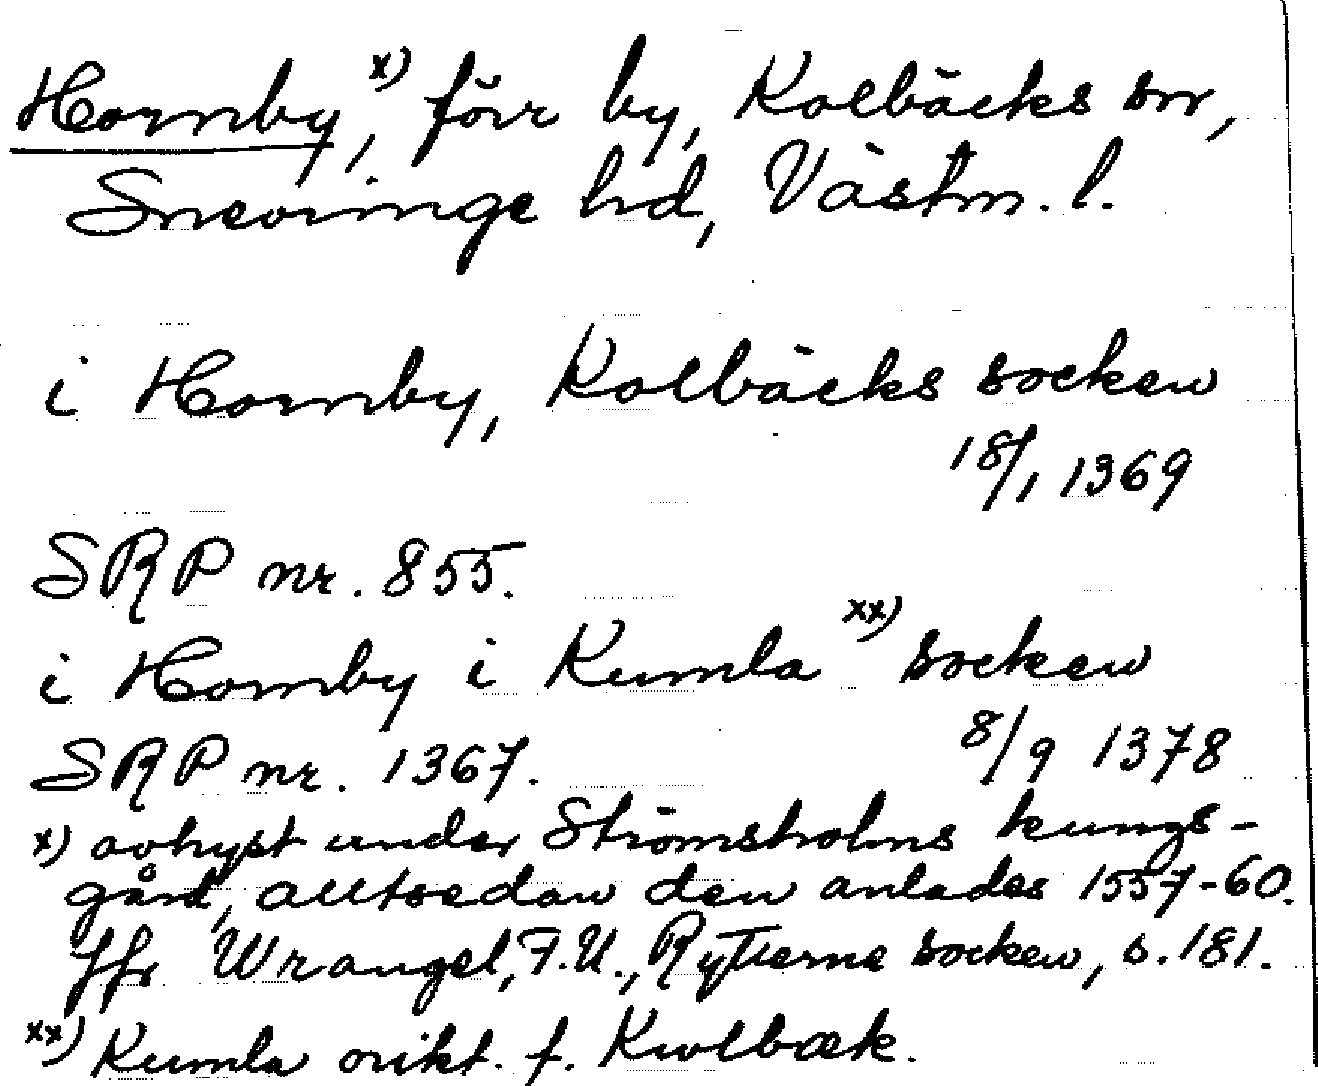 Hornby,ˣ⁾ förr by, Kolbäcks sn,
Snevringe hd, Västm. l.
i Hornby, Kolbäcks socken
18/1 1369
SRP nr. 855.
i Hornby i Kumla ˣˣ⁾ socken
8/9 1378
SRP nr. 1367.
x) avhyst under Strömsholms kungs-
gård, alltsedan den anlades 1557-60.
Jfr Wrangel, F.U., Rytterne socken, s. 181.
xx) Kumla orikt. f. Kwlbæk.